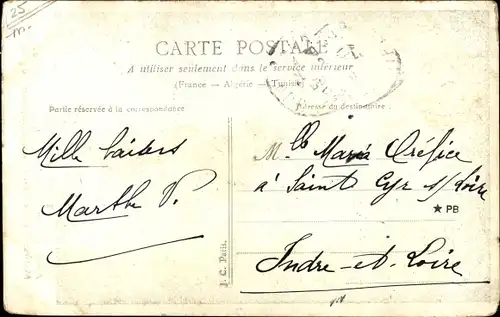 25
m.
CARTE POSTALE
A utiliser seulement dans le service intérieur
(France — Algérie — Tunisie)
Partie réservée à la correspondance
Adresse du destinataire.
Mille baisers
Marthe P.
Mlle Maria Oréfice
à Saint Cyr s/Loire
★ PB
Indre-et-Loire
J. C. Paris.